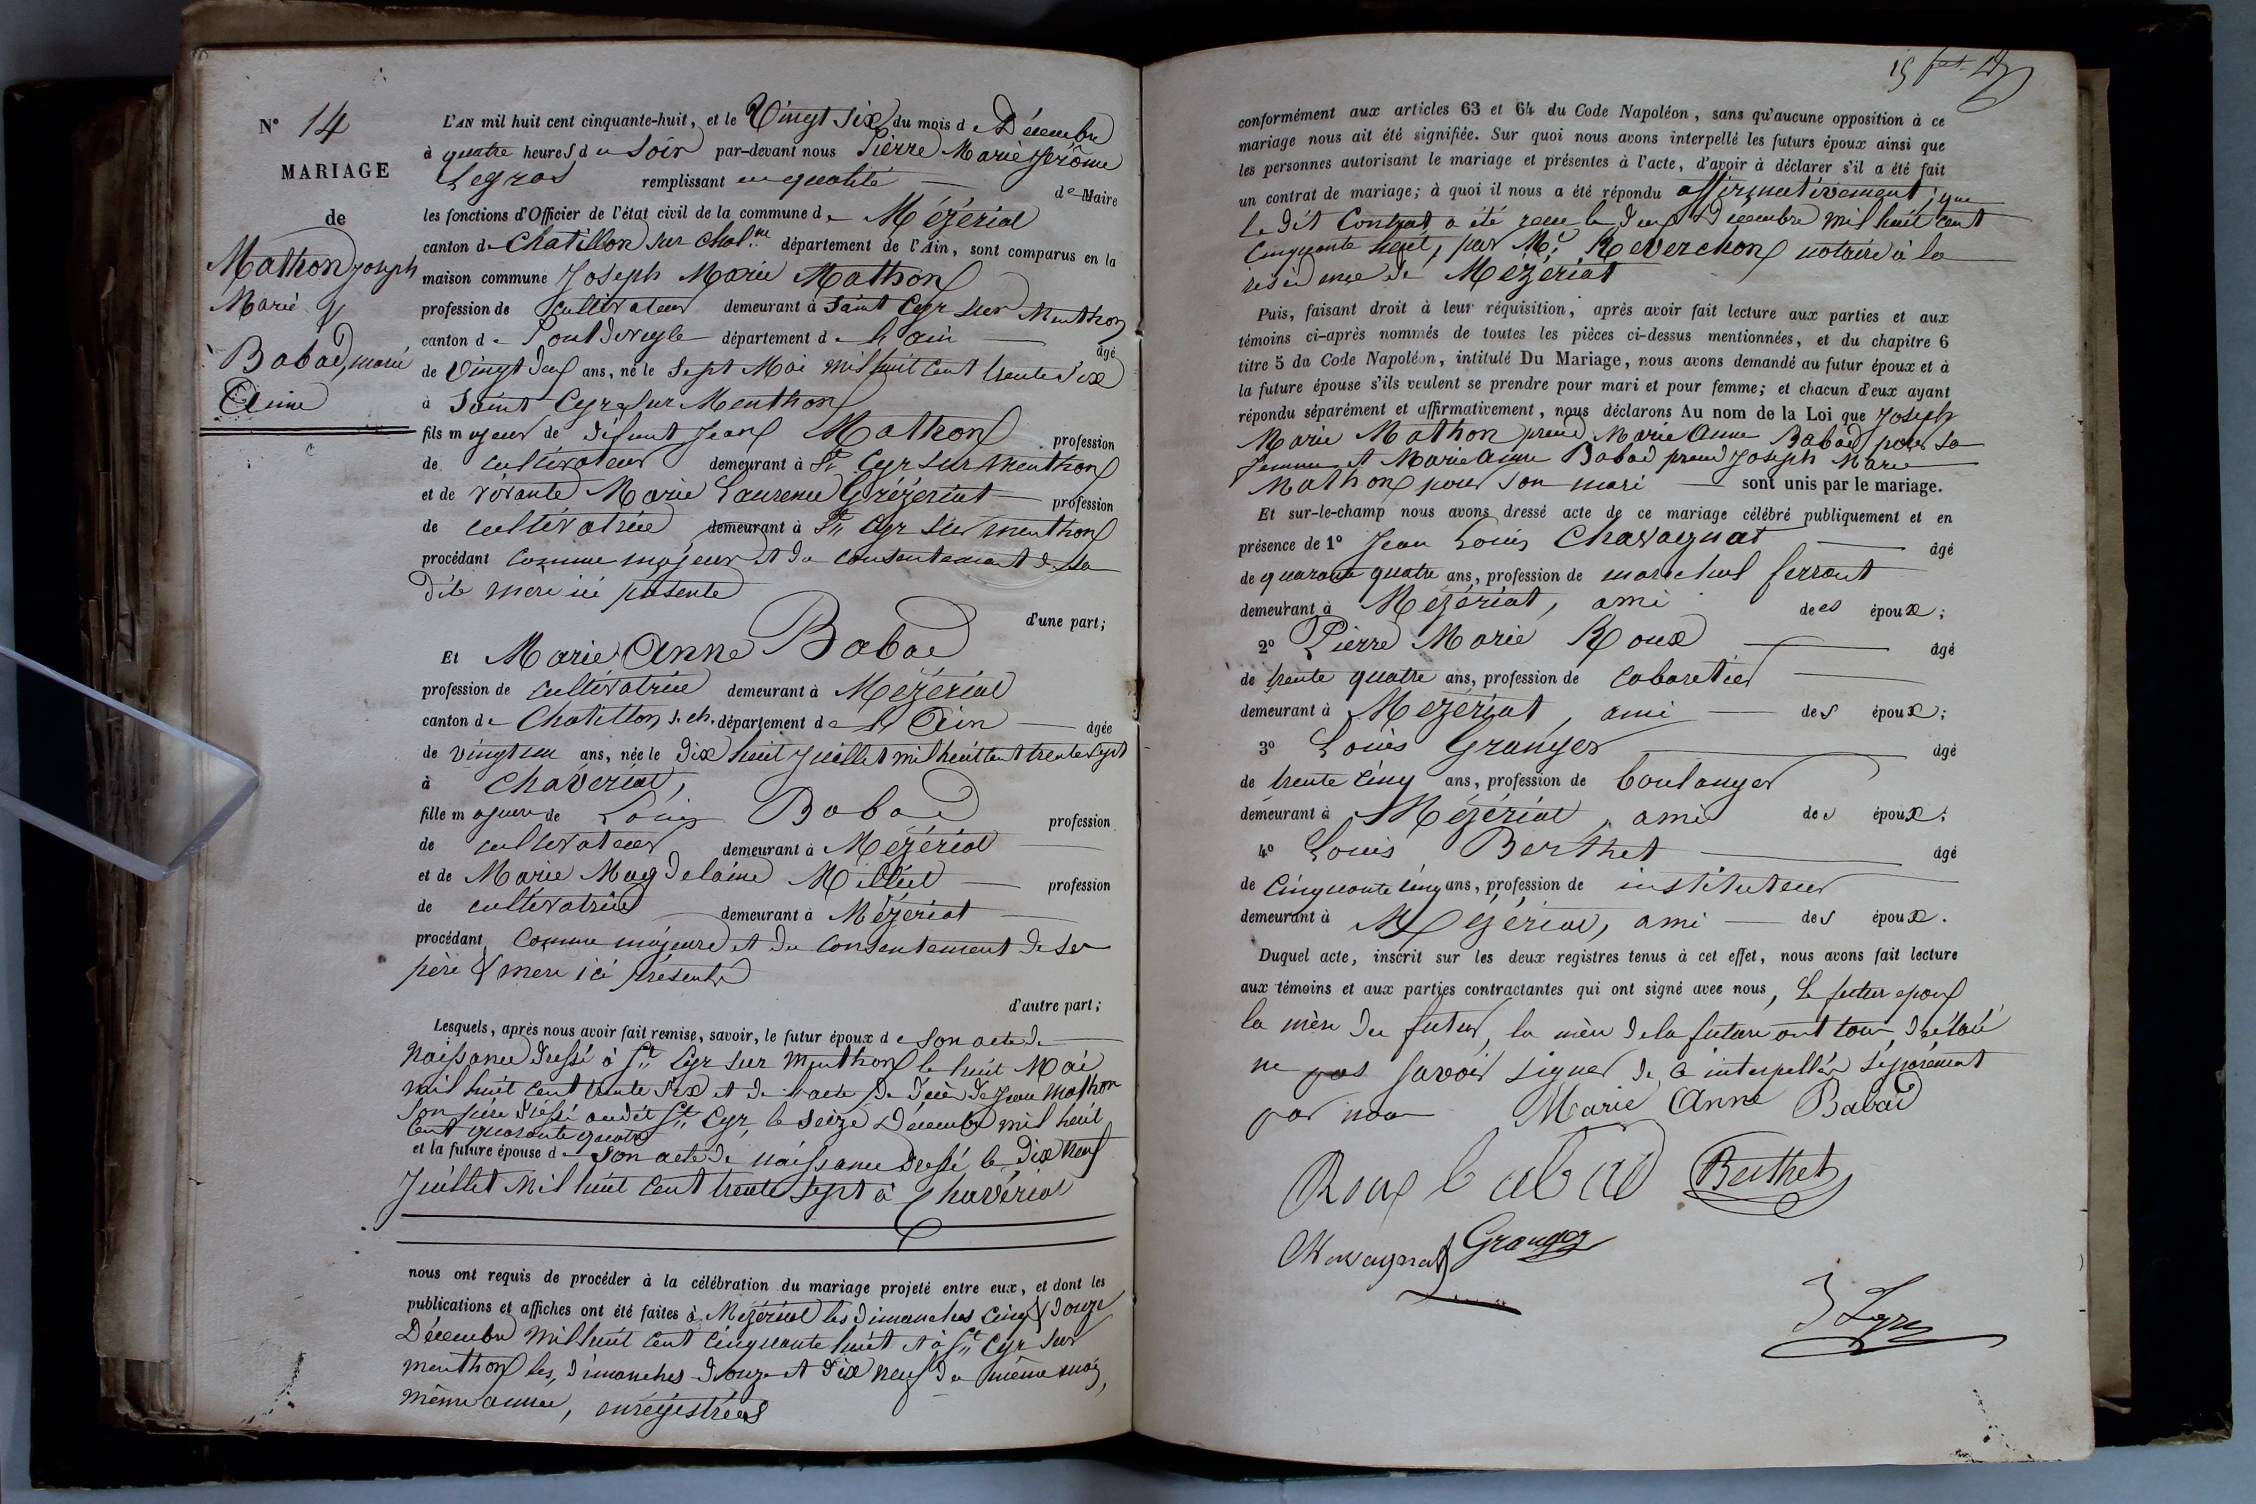 N° 14
MARIAGE
de
Mathon Joseph
Marie &
Babad, marie
Anne
L'AN mil huit cent cinquante-huit, et le Vingt six du mois de Décembre
à quatre heures du Soir par-devant nous Pierre Marie Jérôme
Legros remplissant en qualité de Maire
les fonctions d'Officier de l'état civil de la commune de Mézériat
canton de Chatillon sur Chal.ne département de l'Ain, sont comparus en la
maison commune Joseph Marie Mathon
profession de cultivateur demeurant à Saint Cyr sur Menthon
canton de Pont de veyle département de l'ain âgé
de vingt deux ans, né le sept Mai mil huit cent trente six
à Saint Cyr sur Menthon
fils majeur de défunt Jean Mathon profession
de cultivateur demeurant à St Cyr sur menthon
et de vivante Marie Laurence Grézériat profession
de cultivatrice demeurant à St Cyr sur menthon
procédant comme majeur et du consentement de sa
dite mère ici présente
d'une part;
Et Marie Anne Babad
profession de cultivatrice demeurant à Mézériat
canton de Chatillon s. ch. département de l'Ain âgée
de vingt un ans, née le dix huit Juillet mil huit cent trente sept
à Chavériat,
fille majeure de Louis Babad profession
de cultivateur demeurant à Mézériat
et de Marie Magdelaine Milliet profession
de cultivatrice demeurant à Mézériat
procédant comme majeure et du consentement de ses
père & mère ici présents
d'autre part;
Lesquels, après nous avoir fait remise, savoir, le futur époux de son acte de
naissance dressé à St Cyr sur Menthon le huit Mai
mil huit cent trente six et de l'acte de décès de Jean Mathon
son père dressé audit St Cyr, le seize Décembre mil huit
cent quarante quatre
et la future épouse de son acte de naissance dressé le dix neuf
Juillet mil huit cent trente sept à Chavériat
nous ont requis de procéder à la célébration du mariage projeté entre eux, et dont les
publications et affiches ont été faites à Mézériat les dimanches cinq & douze
Décembre mil huit cent cinquante huit et à St Cyr sur
menthon les dimanches douze et dix neuf du même mois,
même année, enregistrées
conformément aux articles 63 et 64 du Code Napoléon, sans qu'aucune opposition à ce
mariage nous ait été signifiée. Sur quoi nous avons interpellé les futurs époux ainsi que
les personnes autorisant le mariage et présentes à l'acte, d'avoir à déclarer s'il a été fait
un contrat de mariage; à quoi il nous a été répondu affirmativement, que
le dit Contrat a été reçu le deux Décembre mil huit cent
cinquante huit, par Me Reverchon notaire à la
résidence de Mézériat
Puis, faisant droit à leur réquisition, après avoir fait lecture aux parties et aux
témoins ci-après nommés de toutes les pièces ci-dessus mentionnées, et du chapitre 6
titre 5 du Code Napoléon, intitulé Du Mariage, nous avons demandé au futur époux et à
la future épouse s'ils veulent se prendre pour mari et pour femme; et chacun d'eux ayant
répondu séparément et affirmativement, nous déclarons Au nom de la Loi que Joseph
Marie Mathon prend Marie Anne Babad pour sa
femme et Marie Anne Babad prend Joseph Marie
Mathon pour son mari sont unis par le mariage.
Et sur-le-champ nous avons dressé acte de ce mariage célébré publiquement et en
présence de 1° Jean Louis Chavagnat âgé
de quarante quatre ans, profession de marechal ferrant
demeurant à Mézériat, ami des époux;
2° Pierre Marie Roux âgé
de trente quatre ans, profession de cabaretier
demeurant à Mézériat, ami des époux;
3° Louis Granger âgé
de trente cinq ans, profession de boulanger
demeurant à Mézériat, ami des époux;
4° Louis Berthet âgé
de cinquante cinq ans, profession de instituteur
demeurant à Mézériat, ami des époux.
Duquel acte, inscrit sur les deux registres tenus à cet effet, nous avons fait lecture
aux témoins et aux parties contractantes qui ont signé avec nous, le futur epoux
la mère du futur, la mère de la future ont tous déclaré
ne pas savoir signer de ce interpellés séparément
par nous Marie Anne Babad
Roux babad Berthet
Chavagnat Granger